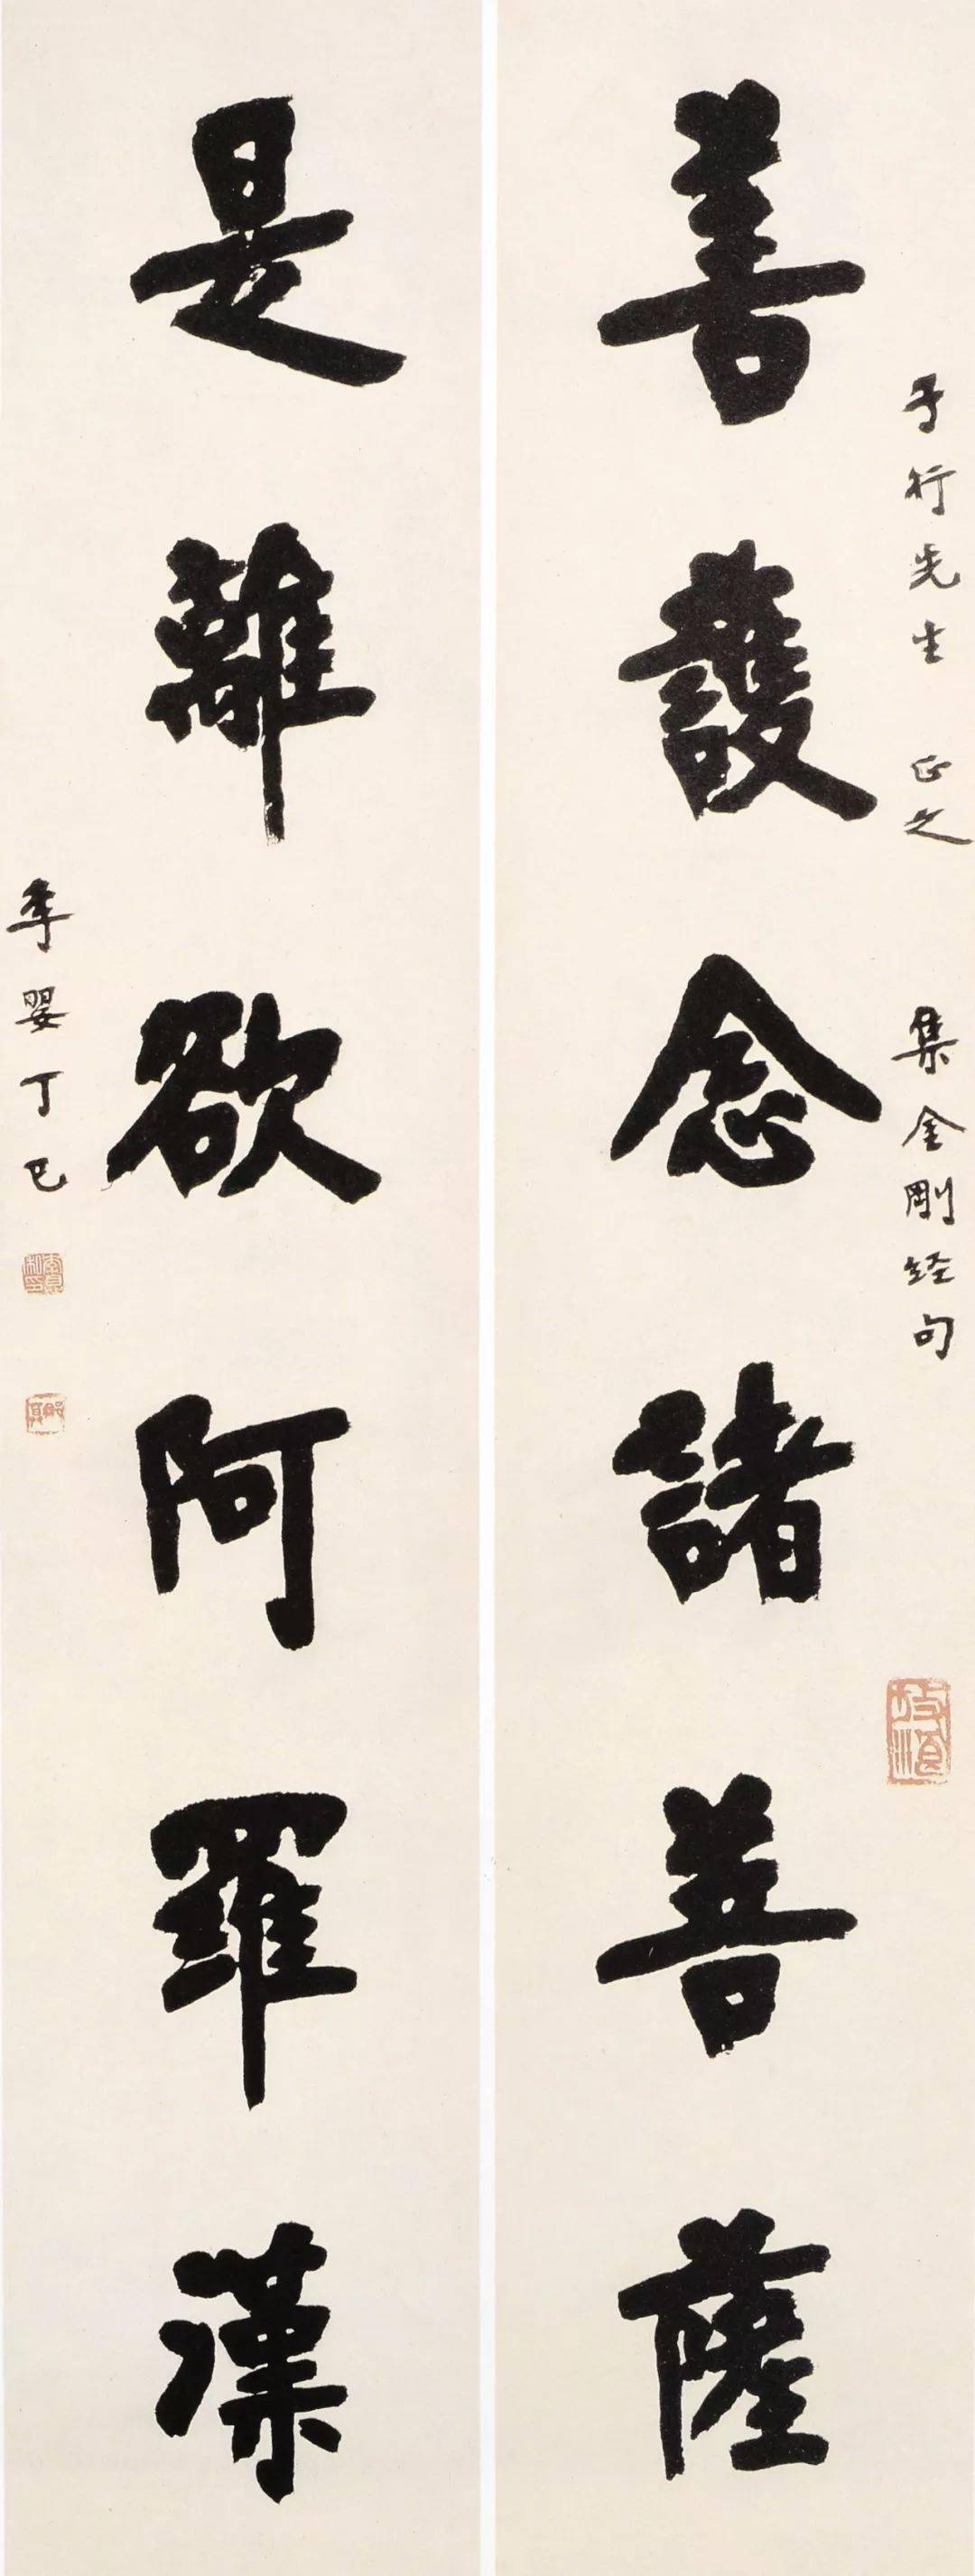 善護念諸菩薩
子行先生 正之 集金剛經句
是離欲阿羅漢
季嬰丁巳